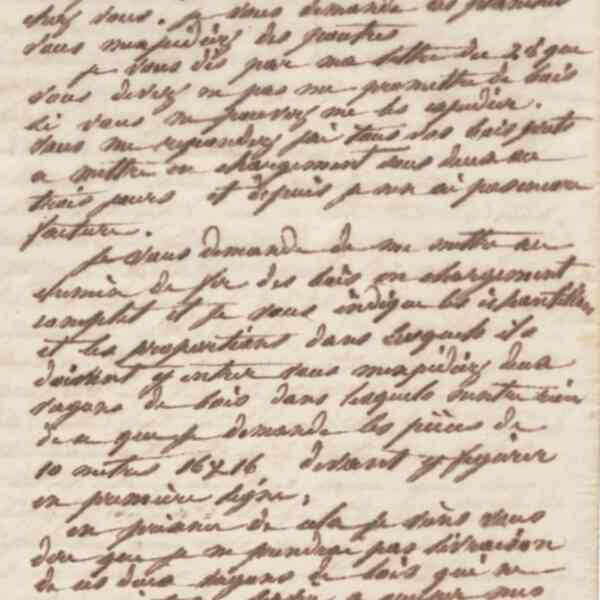 chez vous. je vous demande des planches
vous m'expédiez des poutres
je vous dis par ma lettre du 28 que
vous devez ne pas me promettre de bois
si vous ne pouvez me les expédier.
vous me repondez j'ai tous vos bois prets
a mettre en chargement sous deux ou
trois jours et depuis je n'en ai pas encore
facture.
Je vous demande de me mettre au
chemin de fer des bois en chargement
complet et je vous indique les échantillons
et les proportions dans lesquels ils
doivent y entrer vous m'expédiez deux
wagons de bois dans lesquels n'entre rien
de ce que je demande les pièces de
10 metres 16 x 16 devant y figurer
en première ligne;
en présence de cela je viens vous
dire que je ne prendrai pas livraison
de ces deux wagons de bois qui ne